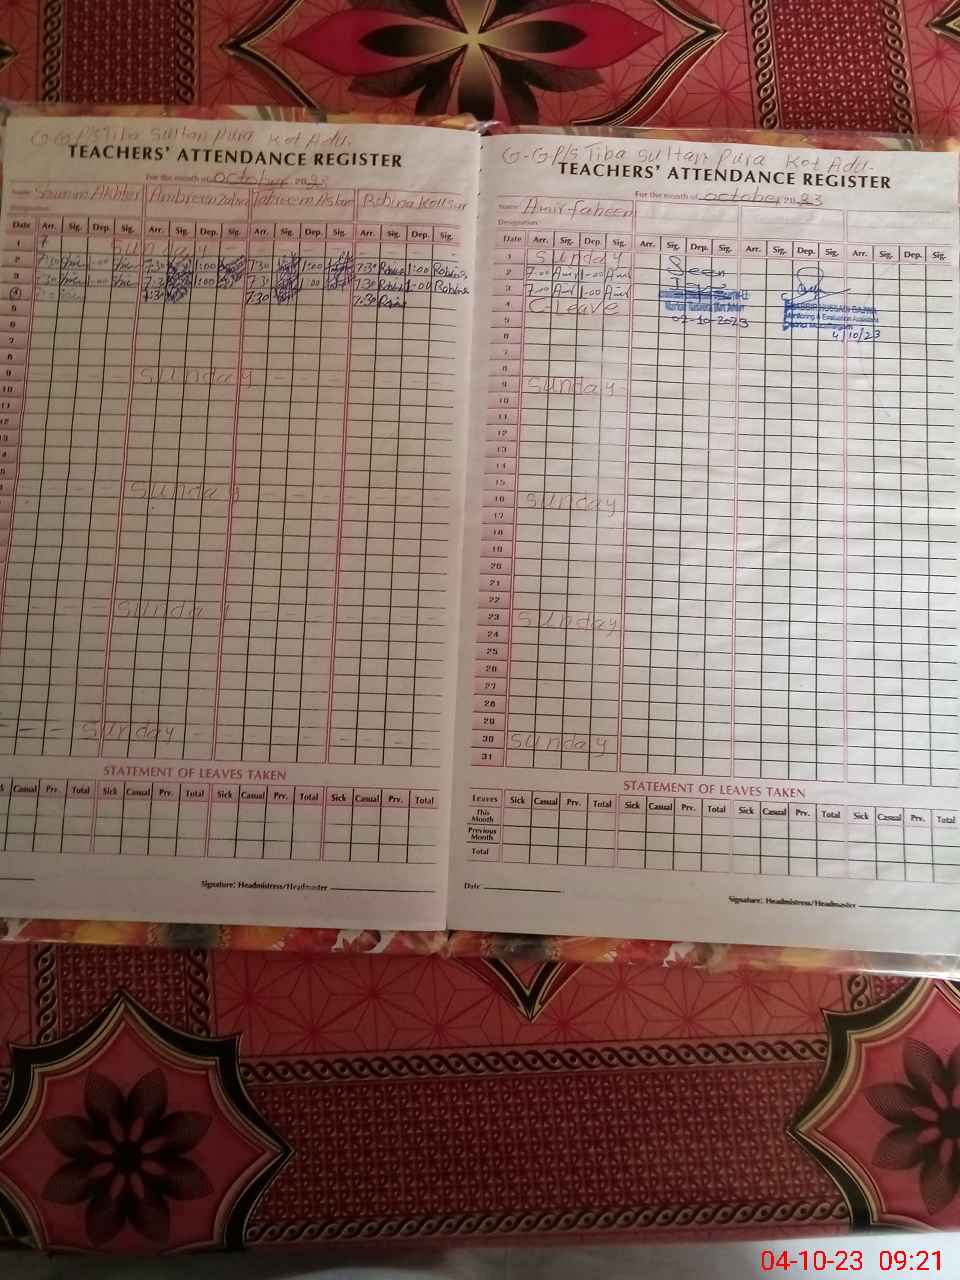 G-G P/S Tiba Sultan Pura Kot Adu-
TEACHERS' ATTENDANCE REGISTER
For the month of October 2023
Name Akhter Ambreen Zahra Tahreem Aslam Robina Kousar
Date Arr. Sig. Dep. Sig. Arr. Sig. Dep. Sig. Arr. Sig. Dep. Sig. Arr. Sig. Dep. Sig.
1 Sunday
2 7:30 1:00 7:30 1:00 7:30 1:00 7:30 Robina 1:00 Robina
3 7:30 1:00 7:30 1:00 7:30 1:00 7:30 Robina 1:00 Robina
4 7:30 7:30 7:30
5
6
7
8
9 Sunday
10
11
12
13
Sunday
Sunday
Sunday
STATEMENT OF LEAVES TAKEN
Casual Prv. Total Sick Casual Prv. Total Sick Casual Prv. Total Sick Casual Prv. Total
Signature: Headmistress/Headmaster
G-G P/S Tiba Sultan Pura Kot Adu-
TEACHERS' ATTENDANCE REGISTER
For the month of October 2023
Name Amir faheem
Designation
Date Arr. Sig. Dep. Sig. Arr. Sig. Dep. Sig. Arr. Sig. Dep. Sig. Arr. Sig. Dep. Sig.
1 Sunday
2 7:00 Amir 1:00 Amir Seen
3 7:00 Amir 1:00 Amir
4 C Leave
Monitoring & Evaluation Assistant
5 02-10-2023
4/10/23
6
7
8
9 Sunday
10
11
12
13
14
15
16 Sunday
17
18
19
20
21
22
23 Sunday
24
25
26
27
28
29
30 Sunday
31
STATEMENT OF LEAVES TAKEN
Leaves Sick Casual Prv. Total Sick Casual Prv. Total Sick Casual Prv. Total
This Month
Previous Month
Total
Date
Signature: Headmistress/Headmaster
04-10-23 09:21